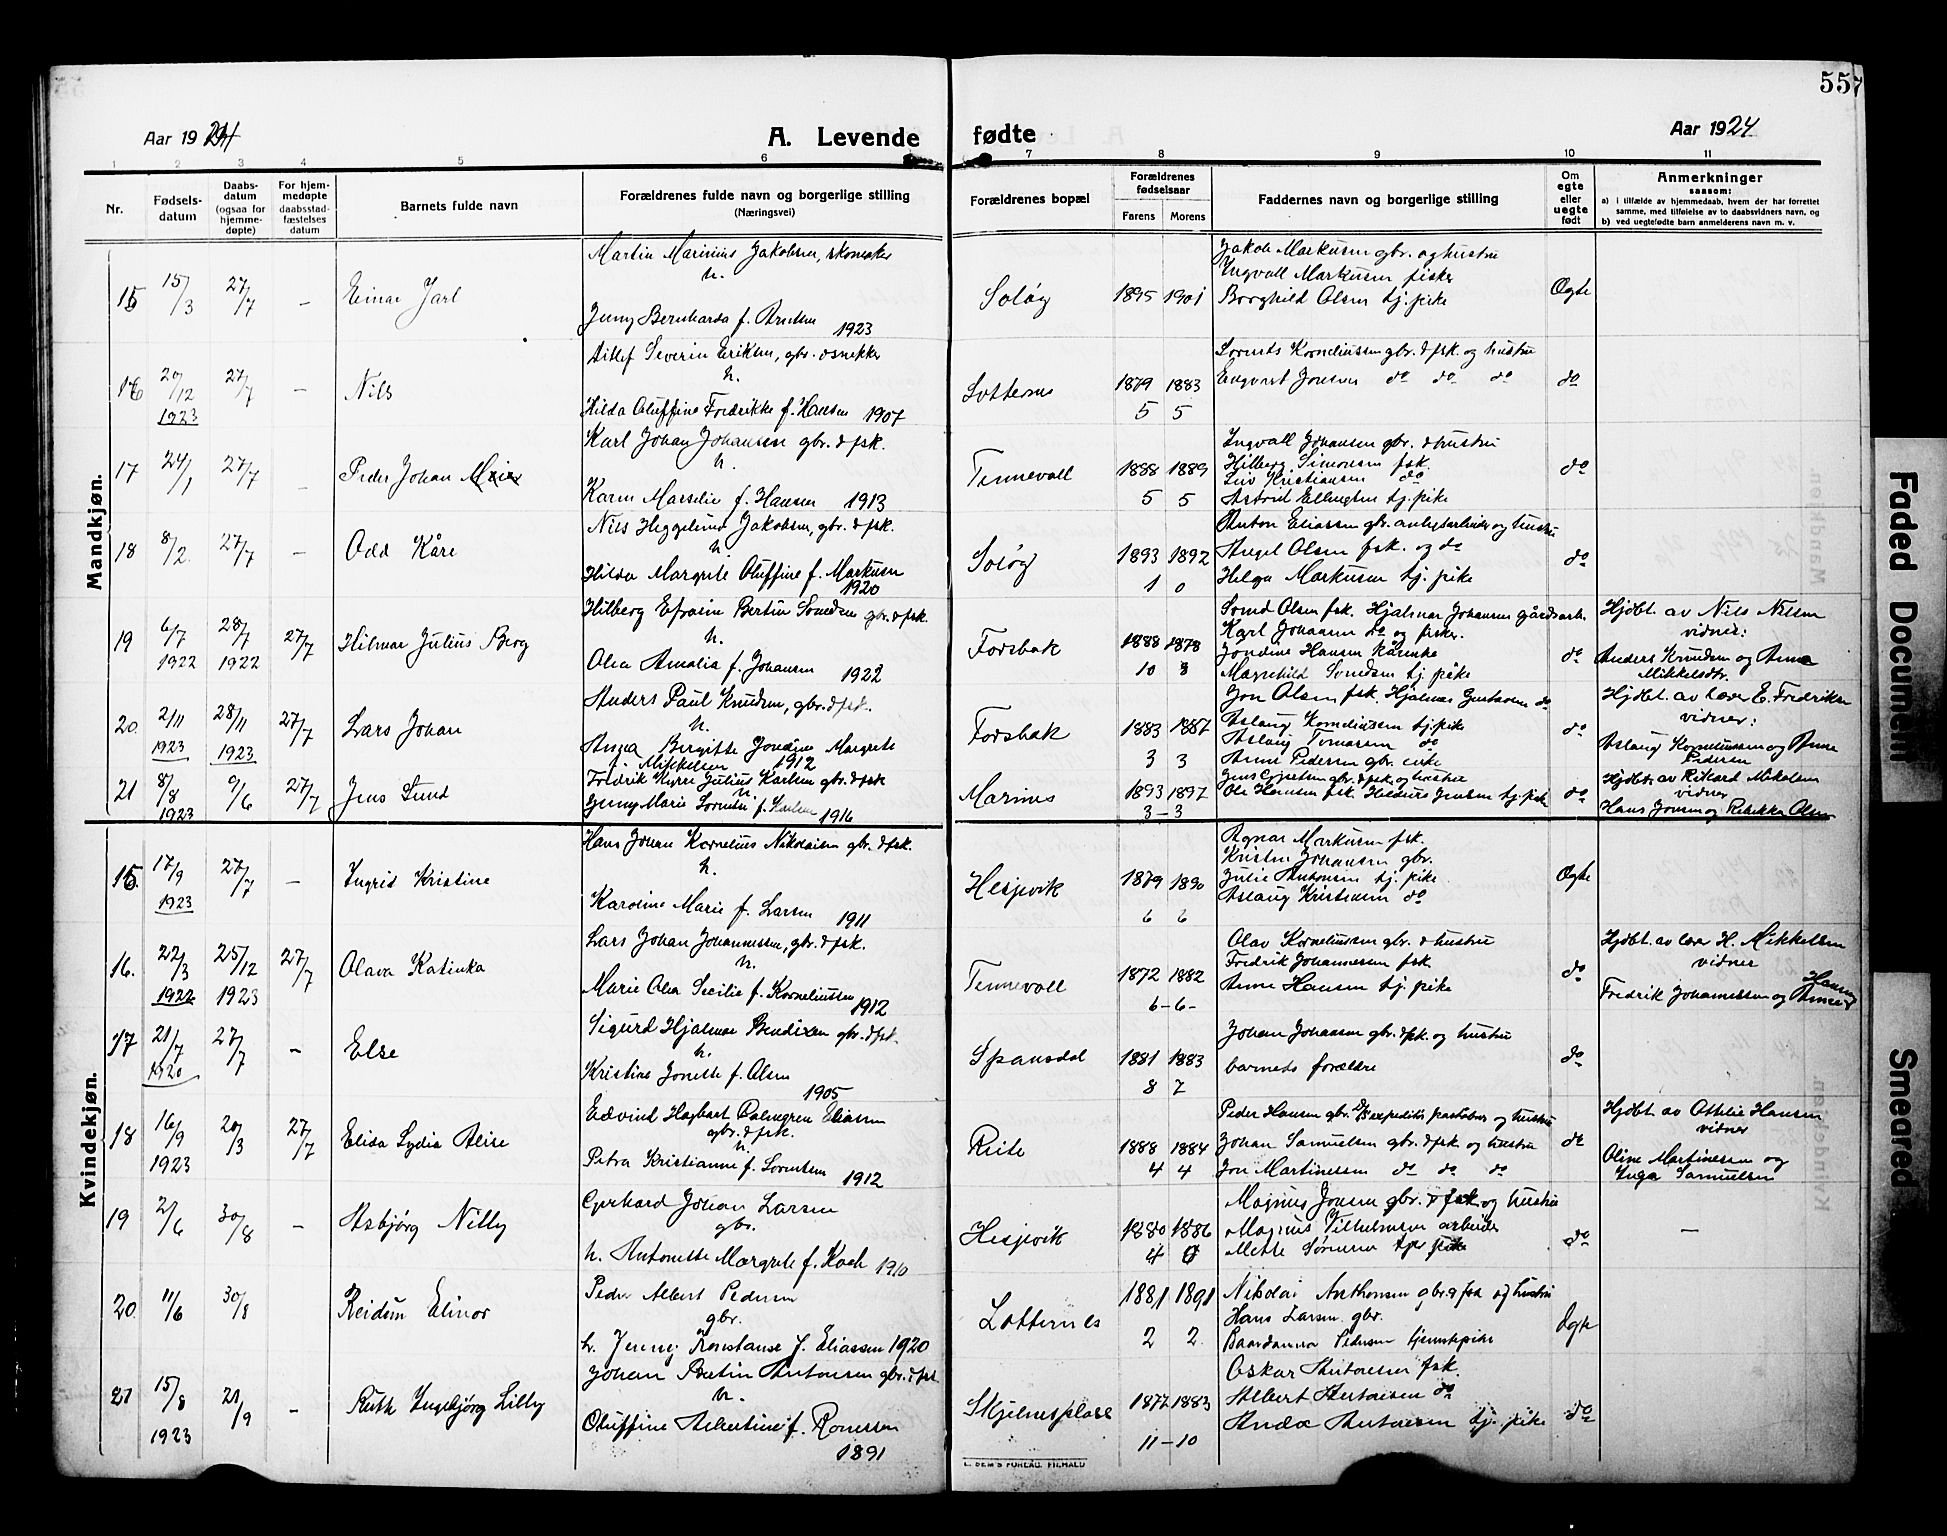 557
Aar 1924
A. Levende fødte
Aar 1924
1 2 3 4 5 6 7 8 9 10 11
Nr.
Fødsels-datum
Daabs-datum (ogsaa for hjemme-døpte)
For hjem-medøpte daabsstad-fæstelses datum
Barnets fulde navn
Forældrenes fulde navn og borgerlige stilling
(Næringsvei)
Forældrenes bopæl
Forældrenes fødselsaar
Farens Morens
Faddernes navn og borgerlige stilling
Om egte eller uegte født
Anmerkninger
saasom:
a) i tilfælde av hjemmedaab, hvem der har forrettet samme, med tilføielse av to daabsvidners navn, og
b) ved uegtefødte barn anmelderens navn m. v.
Mandkjøn.
15 15/3 27/7 – Einar Jarl
Martin Marinius Jakobsen, skomaker
h.
Jenny Bernharda f. 1923
Soløy 1895 1901
Jakob Markussen gbr. og hustru
Ingvall Markussen fisker
Borghild Olsen tj. pike
Ægte
16 20/12 1923 27/7 – Nils
Ditlef Severin Eriksen, gbr. & snekker
h.
Hilda Oluffine Fredrikke f. Hansen 1907
1879 1883
5 5
Korneliussen gbr. & fsk. og hustru
Jensen do do do
do
17 24/1 27/7 – Peder Johan
Karl Johan Johansen gbr. & fsk.
h.
Karen Marselie f. Hansen 1913
Tennevoll 1888 1889
5 5
Ingvall Johansen gbr. & hustru
Hilberg Simonsen fsk.
Kristiansen do
Astrid Ellingsen tj. pike
do
18 8/2 27/7 – Odd Kåre
Nils Heggelund Jakobsen, gbr. & fsk.
h.
Hilda Margrete Oluffine f. Markusen
1920
Soløy 1893 1892
1 0
Anton Eliassen gbr. og hustru
Angel Olsen fsk. og do
Helga Markusen tj. pike
do
19 6/7 1922 28/7 1922 27/7 Hilmar Julius Berg
Hilberg Efraim Bertin Svendsen gbr. & fsk.
h.
Olea Amalia f. Johansen 1922
Forsbak 1888 1878
10 8
Svend Olsen fsk. Hjalmar Johansen gårdsarb.
Karl Johansen do og fisker.
Jondine Hansen kårenke
Magnhild Svendsen tj. pike
do
Hjdøbt av Nils Nilsen
vidner:
Anders Knudsen og Anna
Mikkelsdtr.
20. 2/11 1923 28/11 1923 27/7 Lars Johan
Anders Paul Knudsen, gbr. & fsk.
h.
Anna Birgitte Jondine Margrete
f. Mikkelsen 1912
Forsbak 1883 1887
3 3
Jon Olsen fsk. Hjalmar Gustavsen do
Aslaug Korneliussen tj. pike
Aslaug Tomassen do
Anne Pedersen gbr. enke
do
Hjdøbt av lærer E. Fredriksen
vidner:
Aslaug Korneliussen og Anne
Pedersen
21 8/8 1923 9/6 27/7 Jens Lund
Fredrik Kyrre Julius Karlsen gbr. & fsk
h.
Jenny Marie f. 1916
1893 1897
3 – 3
gbr. & fsk og hustru
Ole Hansen fsk. Jensen tj. pike
do
Hjdøbt av Rikard Mikalsen
vidner
Hans Jensen og Rebekka Olsen
Kvindekjøn.
15. 17/9 1923 27/7 – Ingrid Kristine
Hans Johan Kornelius Nikolaisen gbr. & fsk.
h.
Karoline Marie f. Larsen 1911
Hesjevik 1879 1890
6 6
Agnar Markusen fsk.
Kristen Johansen gbr.
Julie Antonsen tj. pike
Aslaug Kristensen do
Ægte
16. 22/3 1922 25/12 1923 27/7 Olava Katinka
Lars Johan Johannessen, gbr. & fsk.
h.
Marie Olea Secilie f. Korneliussen
1912
Tennevoll 1872 1882
6 – 6 –
Olav Korneliussen gbr. & hustru
Fredrik Johannessen fsk.
Anne Hansen tj. pike
do
Hjdøbt. av lærer H. Mikkelsen
vidner
Fredrik Johannessen og Anne Hansen
17 21/7 1920 27/7 – Else
Sigurd Hjalmar Bendixen gbr. & fsk.
h.
Kristine Jonette f. Olsen
1905
Spansdal 1881 1883
8 7
Johan Johansen gbr. & fsk. og hustru
barnets forældre
do
18 16/9 1923 20/3 27/7 Elida Lydia Alise
Edvind Hagbart Palmgren Eliassen
gbr. & fsk.
h.
Petra Kristianne f. Lorentsen
1912
1888 1884
4 4
Peder Hansen gbr. og hustru
Johan Samuelsen gbr. & fsk og hustru
Jon Martinessen do do do
do
Hjdøbt av Ottilie Hansen
vidner
Oline Martinessen og
Inga Samuelsen
19 2/6 30/8 – Asbjørg Nilly
Gerhard Johan Larsen
gbr.
h. Antonette Margrete f. Koch 1910
Hesjevik 1880 1886
4
Magnus Jensen gbr. & fsk og hustru
Magnus Vilhelmsen arbeider
Mette Sørensen tj pike
do
–
20. 11/6 30/8 Reidun Elinor
Peder Albert Pedersen
gbr.
h. Jenny Konstanse f. Eliassen 1920
Lotternes 1881 1891
2 2.
Nikolai Anthonsen gbr & fsk og hustru
Hans Larsen gbr.
Pedersen tjenestepike
Ægte
21 15/8 1923 21/9 – Ruth Ingebjørg Lilly
Johan Bertin Antonsen gbr. & fsk
h.
Oluffine Albertine f. 1891
1872 1883
11 – 10
Oskar Antonsen fsk.
Albert Antonsen do
Anda Antonsen tj. pike
do
Faded Document
Smeared